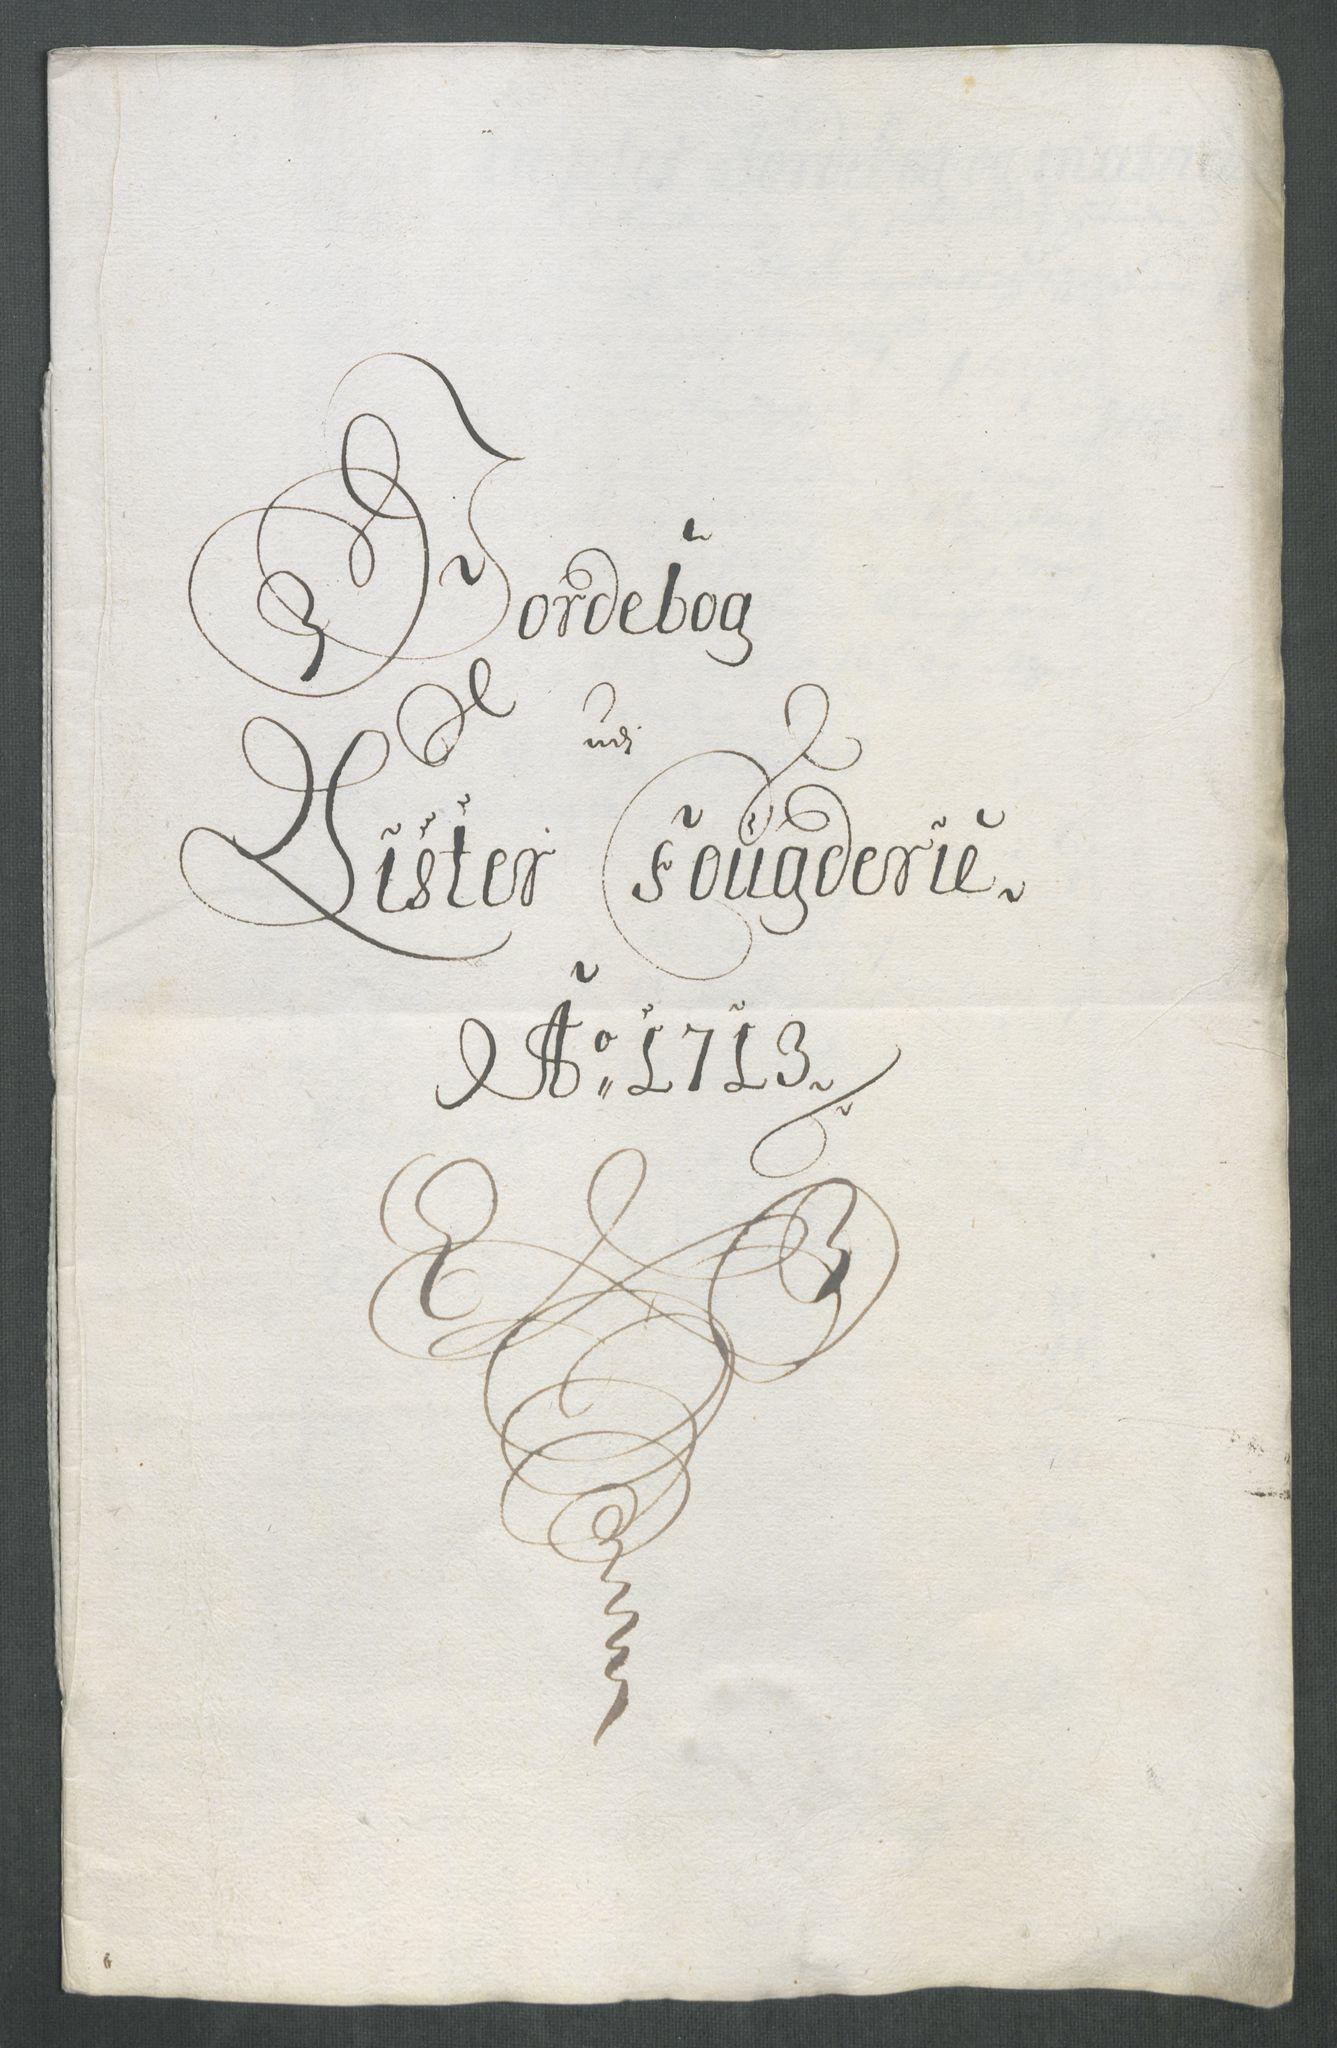 Jordebog
udi
Lister Fougderie.
Ao: 1713.